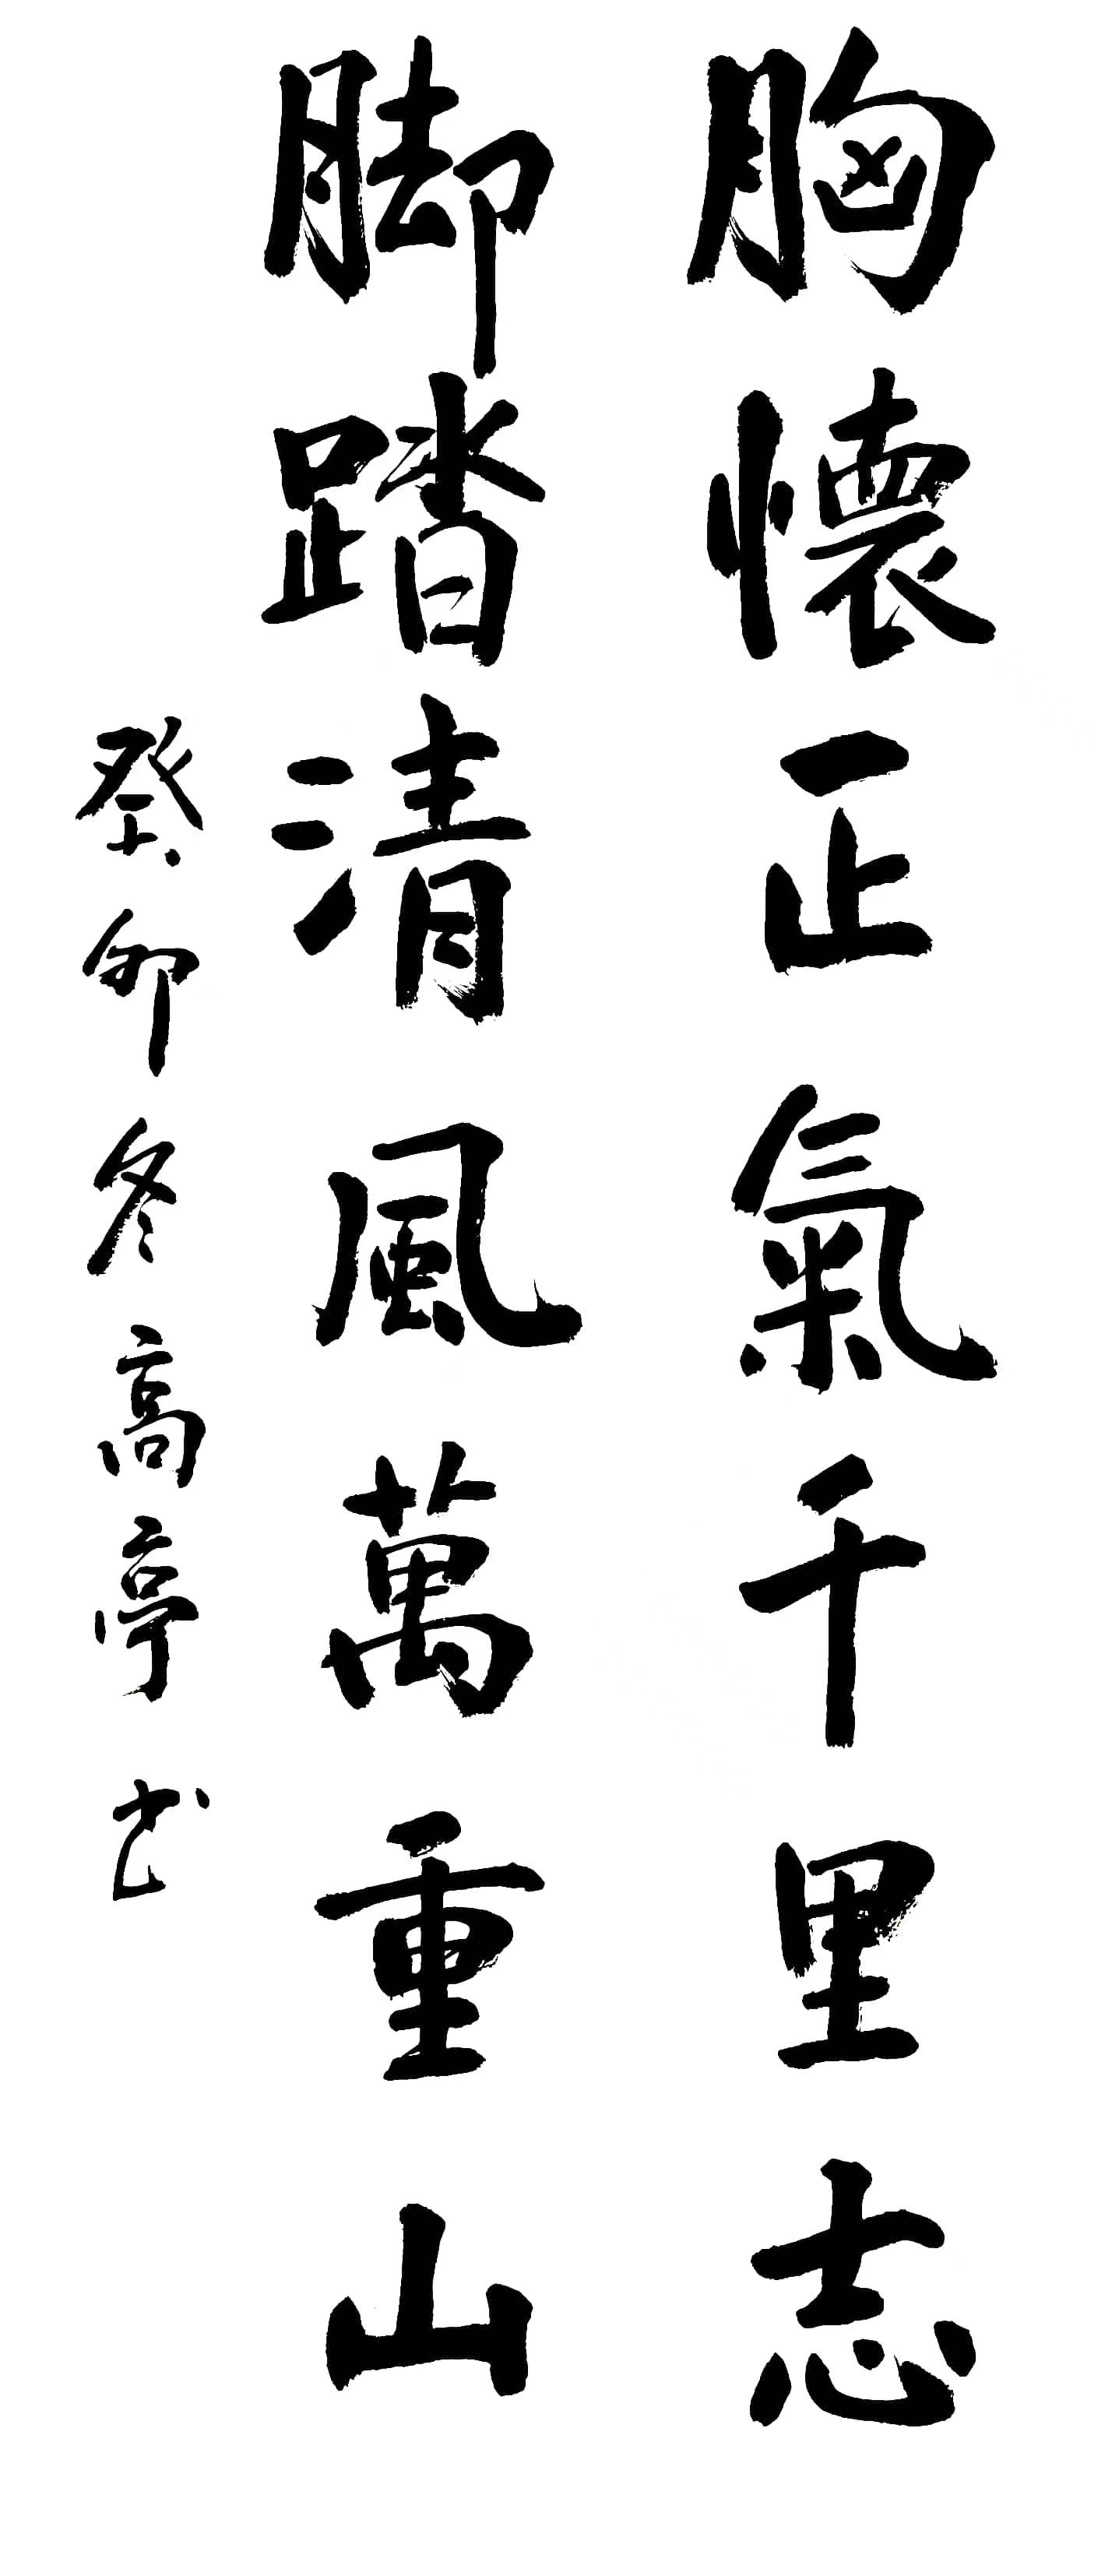 胸懷正氣千里志
脚踏清風萬重山
癸卯冬高亭书